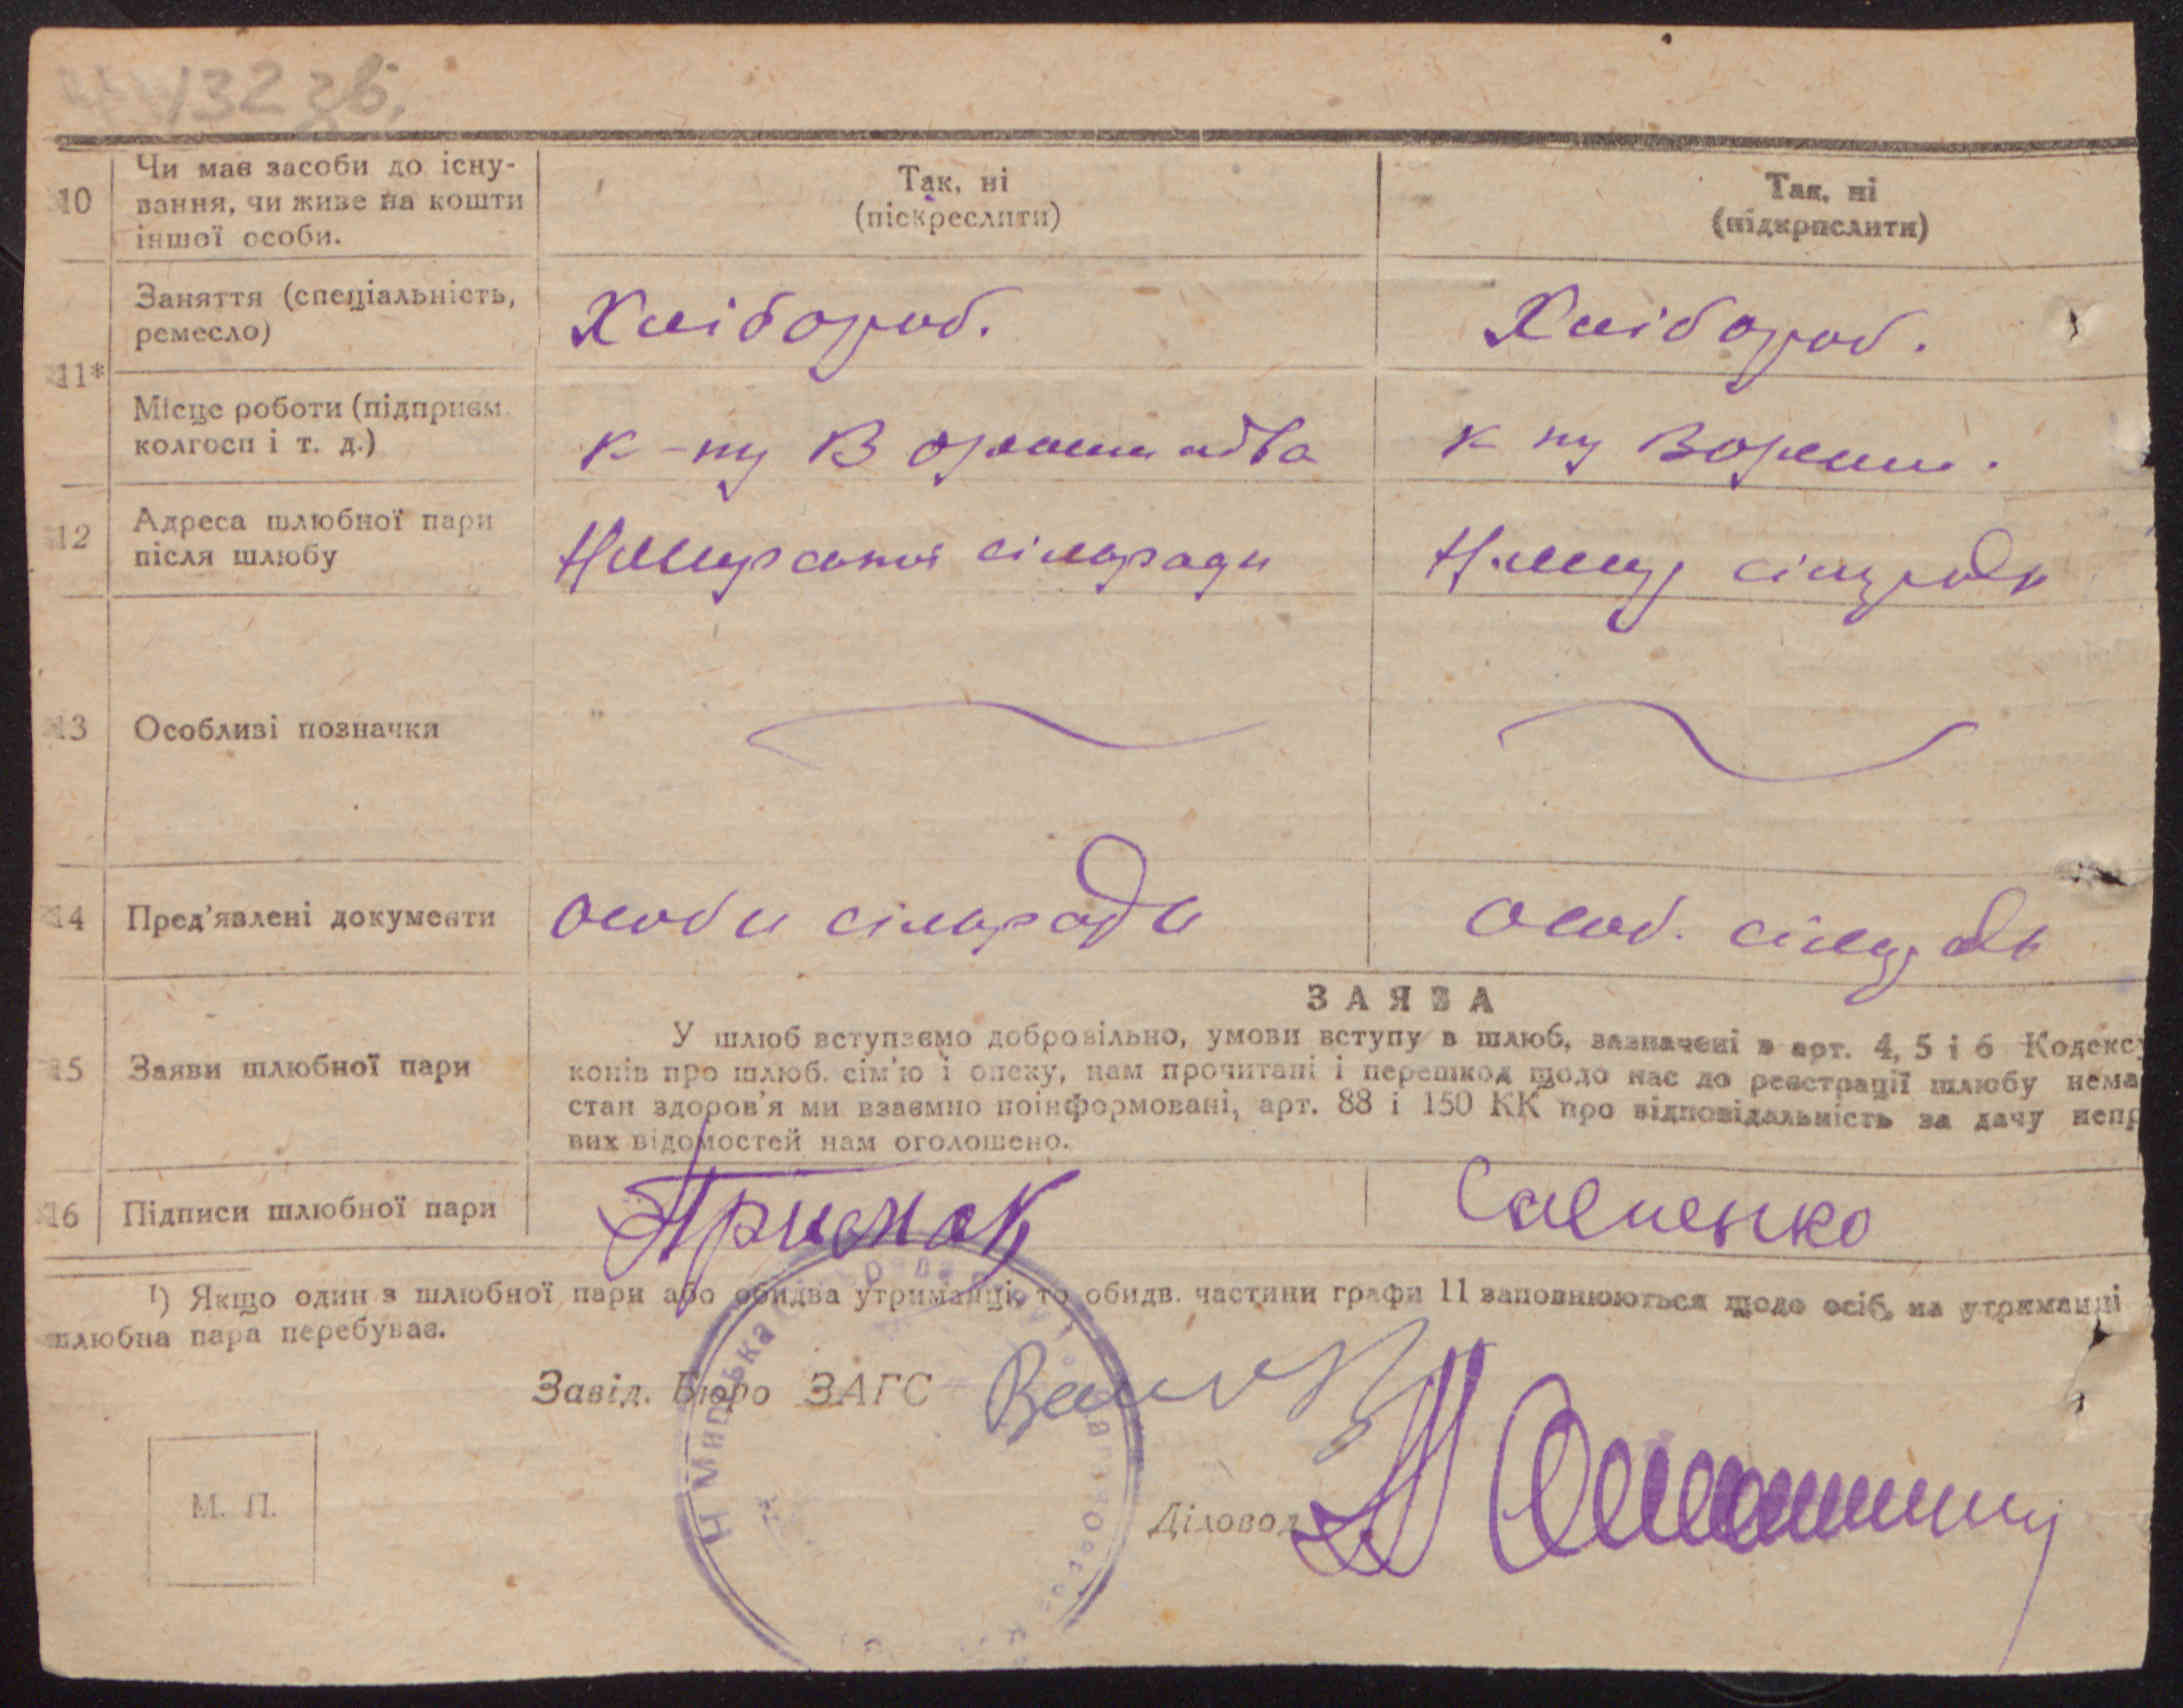 132 зв.
10
Чи має засоби до існу-
вання, чи живе на кошти
іншої особи.
Так, ні
(піскреслити)
Так, ні
(підкрпслити)
11*
Заняття (спеціальність,
ремесло)
Хлібороб.
Хлібороб.
Місце роботи (підприєм.
колгосп і т. д.)
к-пу Ворошилова
к пу Ворош.
12
Адреса шлюбної пари
після шлюбу
сільради
сільради
13
Особливі позначки
14
Пред'явлені документи
особи сільради
особ. сільради
15
Заяви шлюбної пари
ЗАЯВА
У шлюб вступаємо добровільно, умови вступу в шлюб, зазначені в арт. 4, 5 і 6 Кодексу
конів про шлюб. сім'ю і опеку, нам прочитані і перешкод щодо нас до реєстрації шлюбу нема
стан здоров'я ми взаємно поінформовані, арт. 88 і 150 КК про відповідальність за дачу непр
вих відомостей нам оголошено.
16
Підписи шлюбної пари
Приймак
Савченко
¹) Якщо один з шлюбної пари або обидва утриманці, то обидв. частини графи 11 заповнюються щодо осіб, на утриманні
шлюбна пара перебуває.
Завід. Бюро ЗАГС
М. П.
Діловод